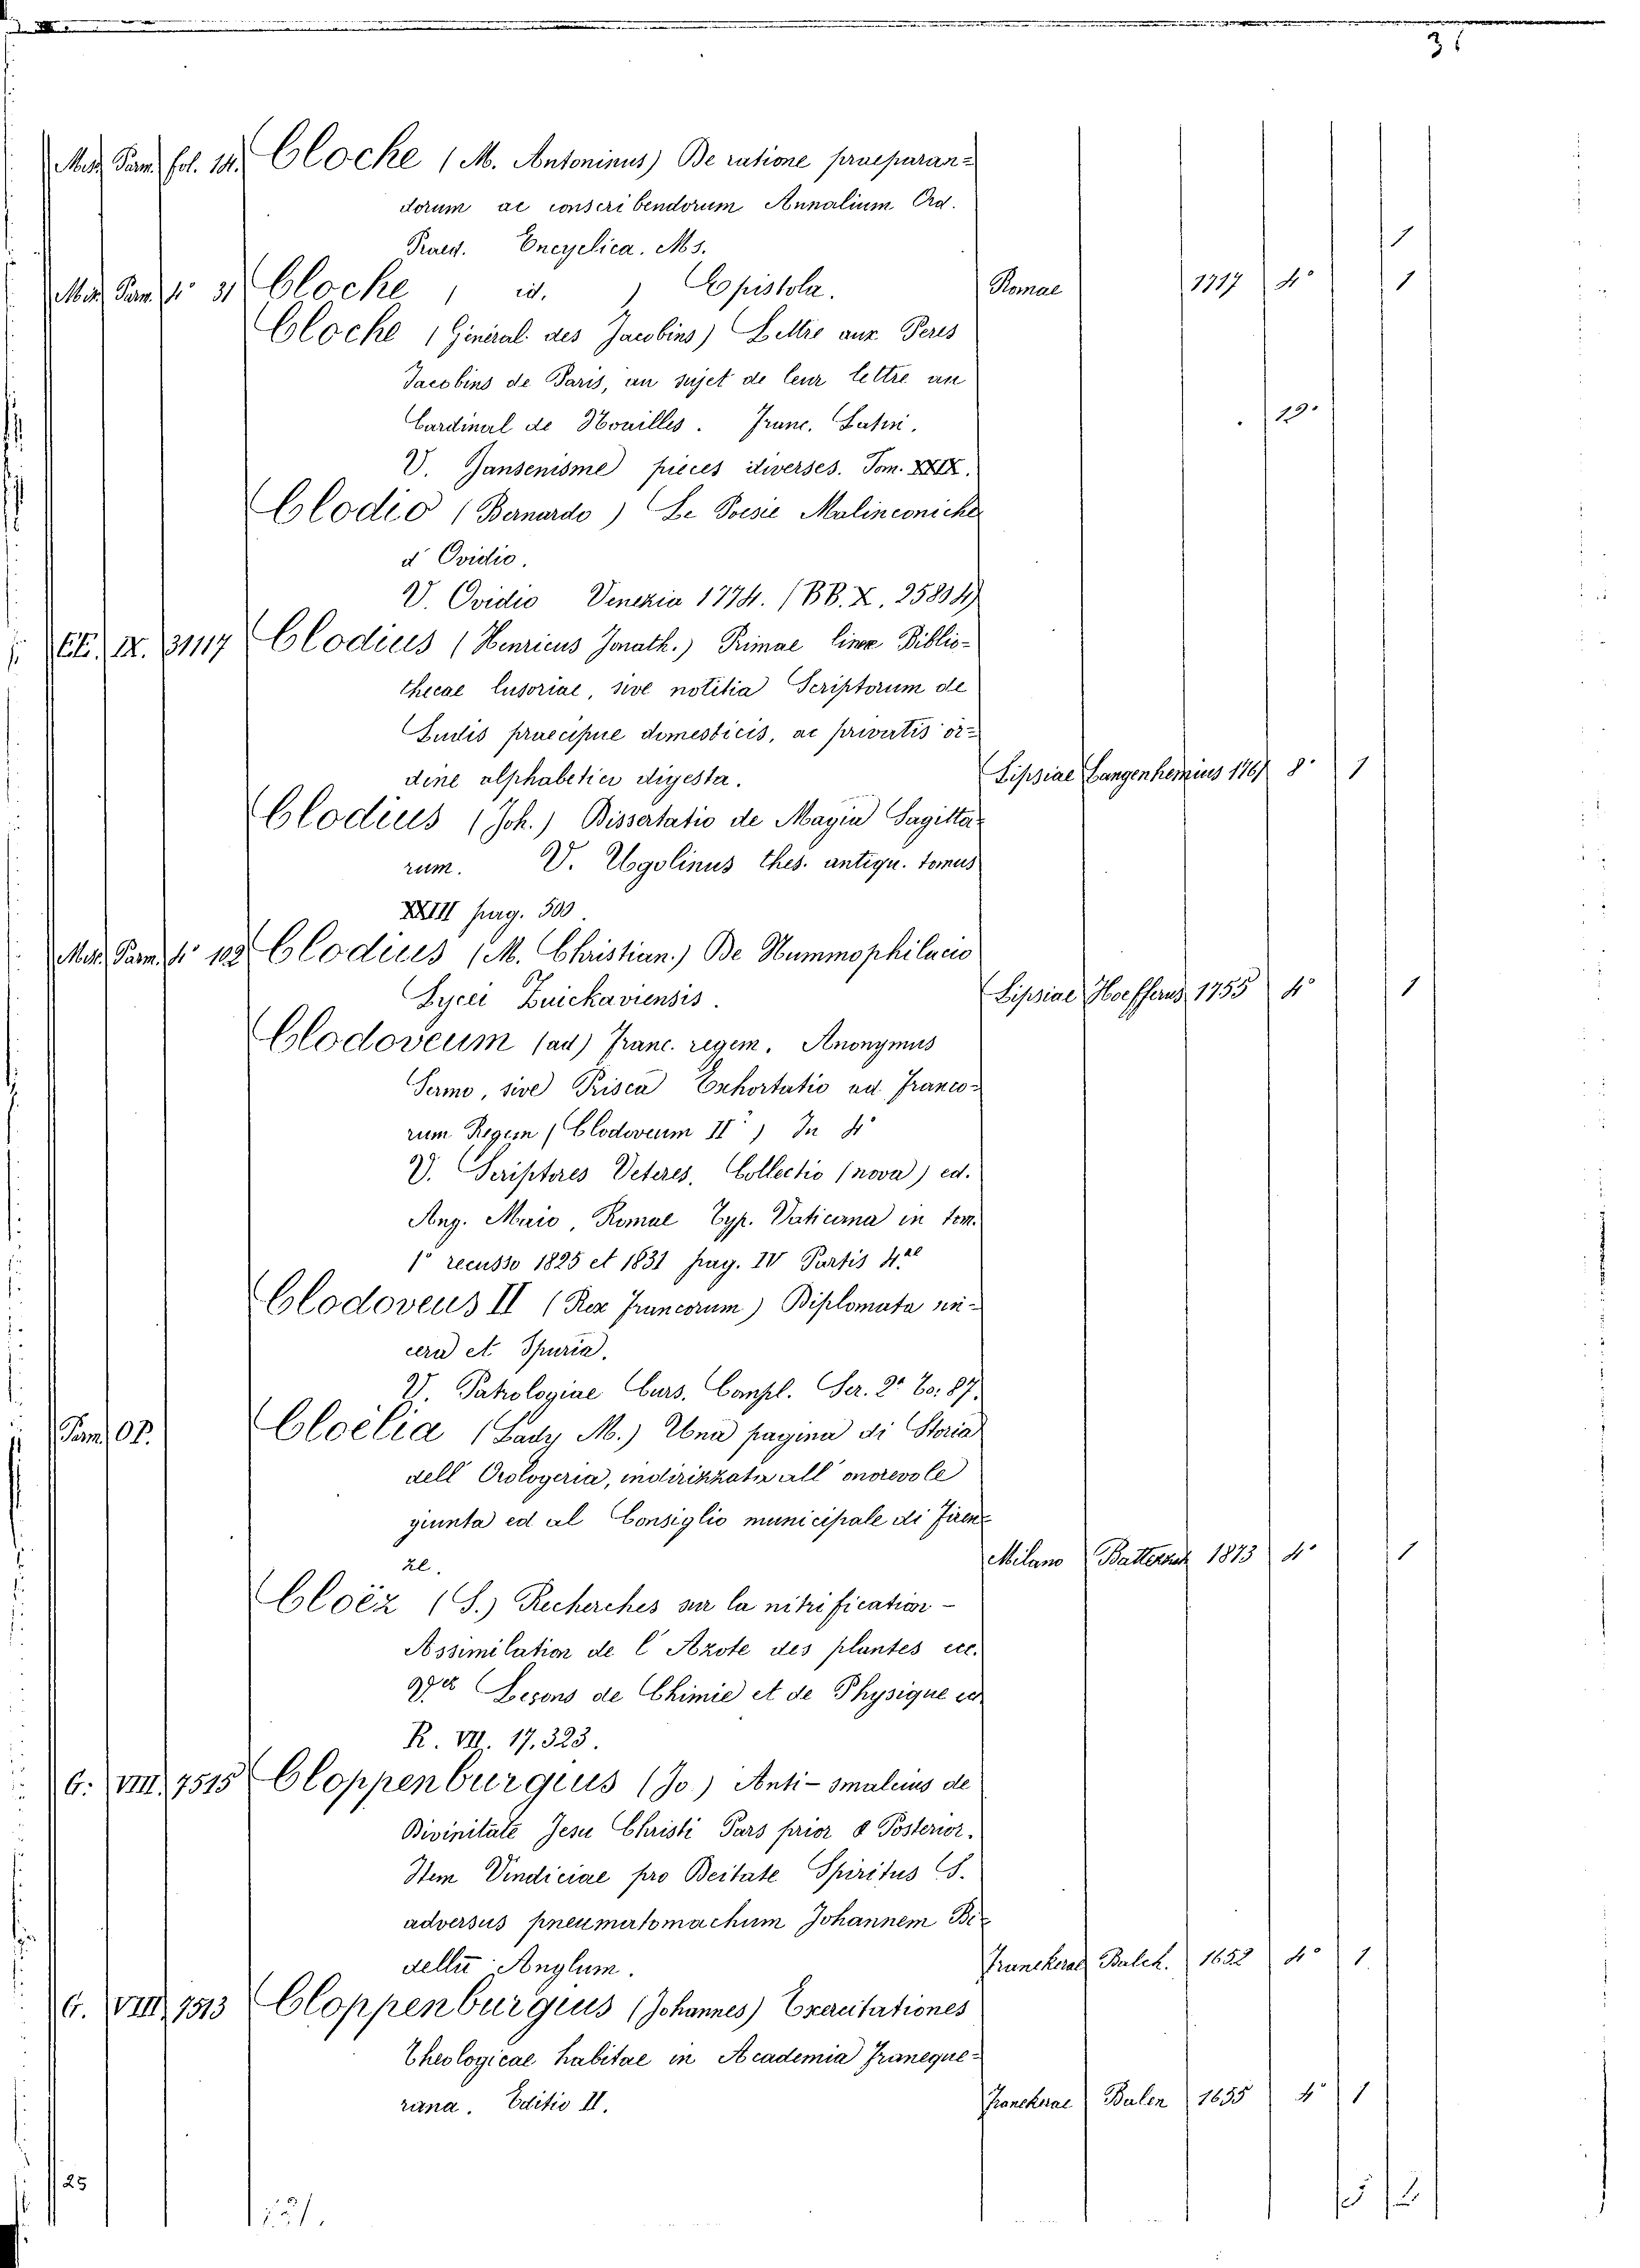 31
Misc. Pam. fol. 14. Cloche (M. Antoninus) De ratione praeparan=
dorum ac conscribendorum Annalium Ord.
Praed. Encyclica. Ms. 1
Misc. Pam. 4° 31 Cloche ( id. ) Epistola. Romae 1717 4° 1
Cloche (Général des Jacobins) Lettre aux Peres
Jacobins de Paris, au sujet de leur lettre au
Cardinal de Noailles. Franc. Latin. 12°
V. Jansenisme pièces diverses. Tom. XXIX.
Clodio (Bernardo) Le Poesie Malinconiche
d' Ovidio.
V. Ovidio Venezia 1774. (BB. X. 25814)
IX. 31117 Clodius (Henricus Jonath.) Primae lineae Biblio-
thecae lusoriae, sive notitia Scriptorum de
Ludis praecipue domesticis, ac privatis or=
dine alphabetico digesta. Lipsiae Langenhemius 1761 8° 1
Clodius (Joh.) Dissertatio de Magia Sagitta-
rum. V. Ugolinus thes. antiqu. tomus
XXIII pag. 500.
Misc. Pam. 4° 102 Clodius (M. Christian.) De Nummophilacio
Lycei Zuickaviensis. Lipsiae 1755 4° 1
Clodoveum (ad) Franc. regem. Anonymus
Sermo, sive Prisca Exhortatio ad Franco=
rum Regem (Clodoveum II°) In 4°
V. Scriptores Veteres, Collectio (nova) ed.
Ang. Maio, Romae Typ. Vaticana in tom.
1° recusso 1825 et 1831 pag. IV Partis 4ae
Clodoveus II (Rex Francorum) Diplomata sin-
cera et Spuria.
V. Patrologiae Curs. Compl. Ser. 2a To: 87.
Pam. OP. Cloelia (Lady M.) Una pagina di Storia
dell' Orologeria, indirizzata all' onorevole
giunta ed al Consiglio municipale di Firen=
ze. Milano 1873 4° 1
Cloëz (S.) Recherches sur la nitrification -
Assimilation de l' Azote des plantes etc.
Leçons de Chimie et de Physique
R. VII. 17.323.
G. VIII. 7515 Cloppenburgius (Jo.) Anti-smalcius de
Divinitate Jesu Christi Pars prior & Posterior.
Item Vindiciae pro Deitate Spiritus S.
adversus pneumatomachum Johannem Bi=
dellū Anglum. Franekerae Balck. 1652 4° 1
G. VIII. 7513 Cloppenburgius (Johannes) Exercitationes
Theologicae habitae in Academia Franeque=
rana. Editio II. Franekerae Balen 1655 4° 1
25
5 12